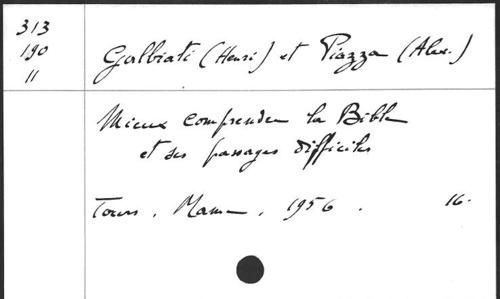 313
190
11
Galbiati (Henri) et Piazza (Alex.)
Mieux comprendre la Bible
et ses passages difficiles
Tours, Mame, 1956. 16.